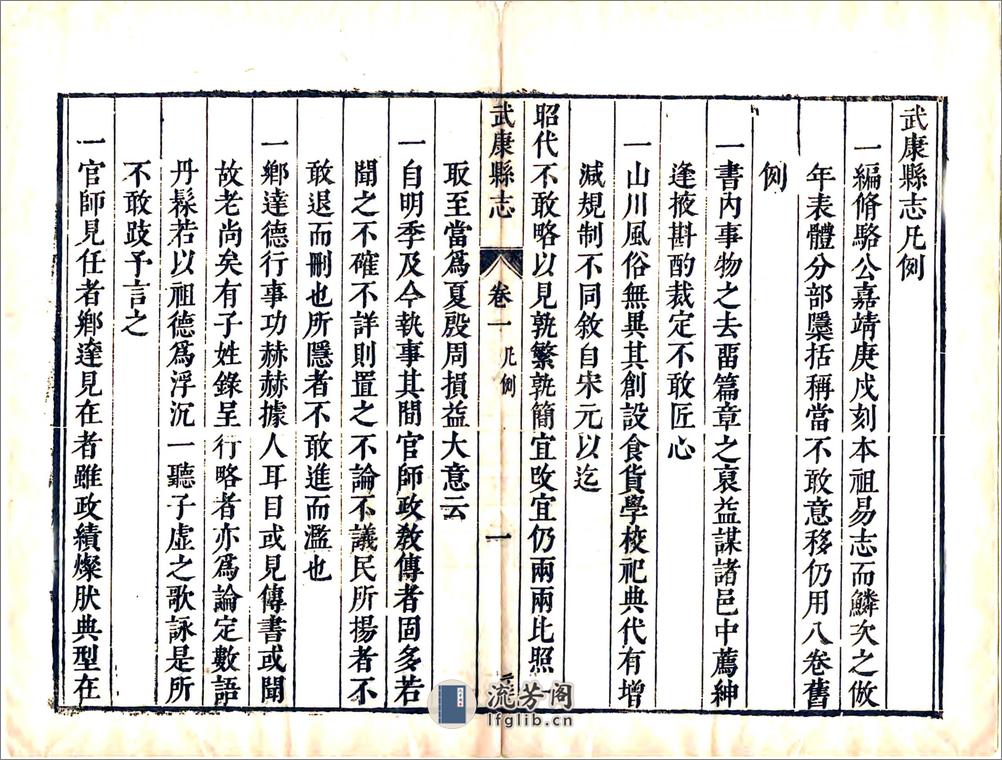 武康縣志凡例
一編脩駱公嘉靖庚戌刻本祖易志而鱗次之倣
年表體分部櫽括稱當不敢意移仍用八卷舊
例
一書內事物之去畱篇章之裒益謀諸邑中薦紳
逢掖斟酌裁定不敢匠心
一山川風俗無異其創設食貨學校祀典代有增
減規制不同敘自宋元以迄
昭代不敢略以見孰繁孰簡宜攺宜仍兩兩比照
武康縣志 卷一 凡例 一
取至當爲夏殷周損益大意云
一自明季及今執事其間官師政教傳者固多若
聞之不確不詳則置之不論不議民所揚者不
敢退而刪也所隱者不敢進而濫也
一鄉達德行事功赫赫據人耳目或見傳書或聞
故老尚矣有子姓錄呈行略者亦爲論定數語
丹髹若以祖德爲浮沉一聽子虛之歌詠是所
不敢跂予言之
一官師見任者鄉達見在者雖政績燦肰典型在
流芳阁
lfglib.cn